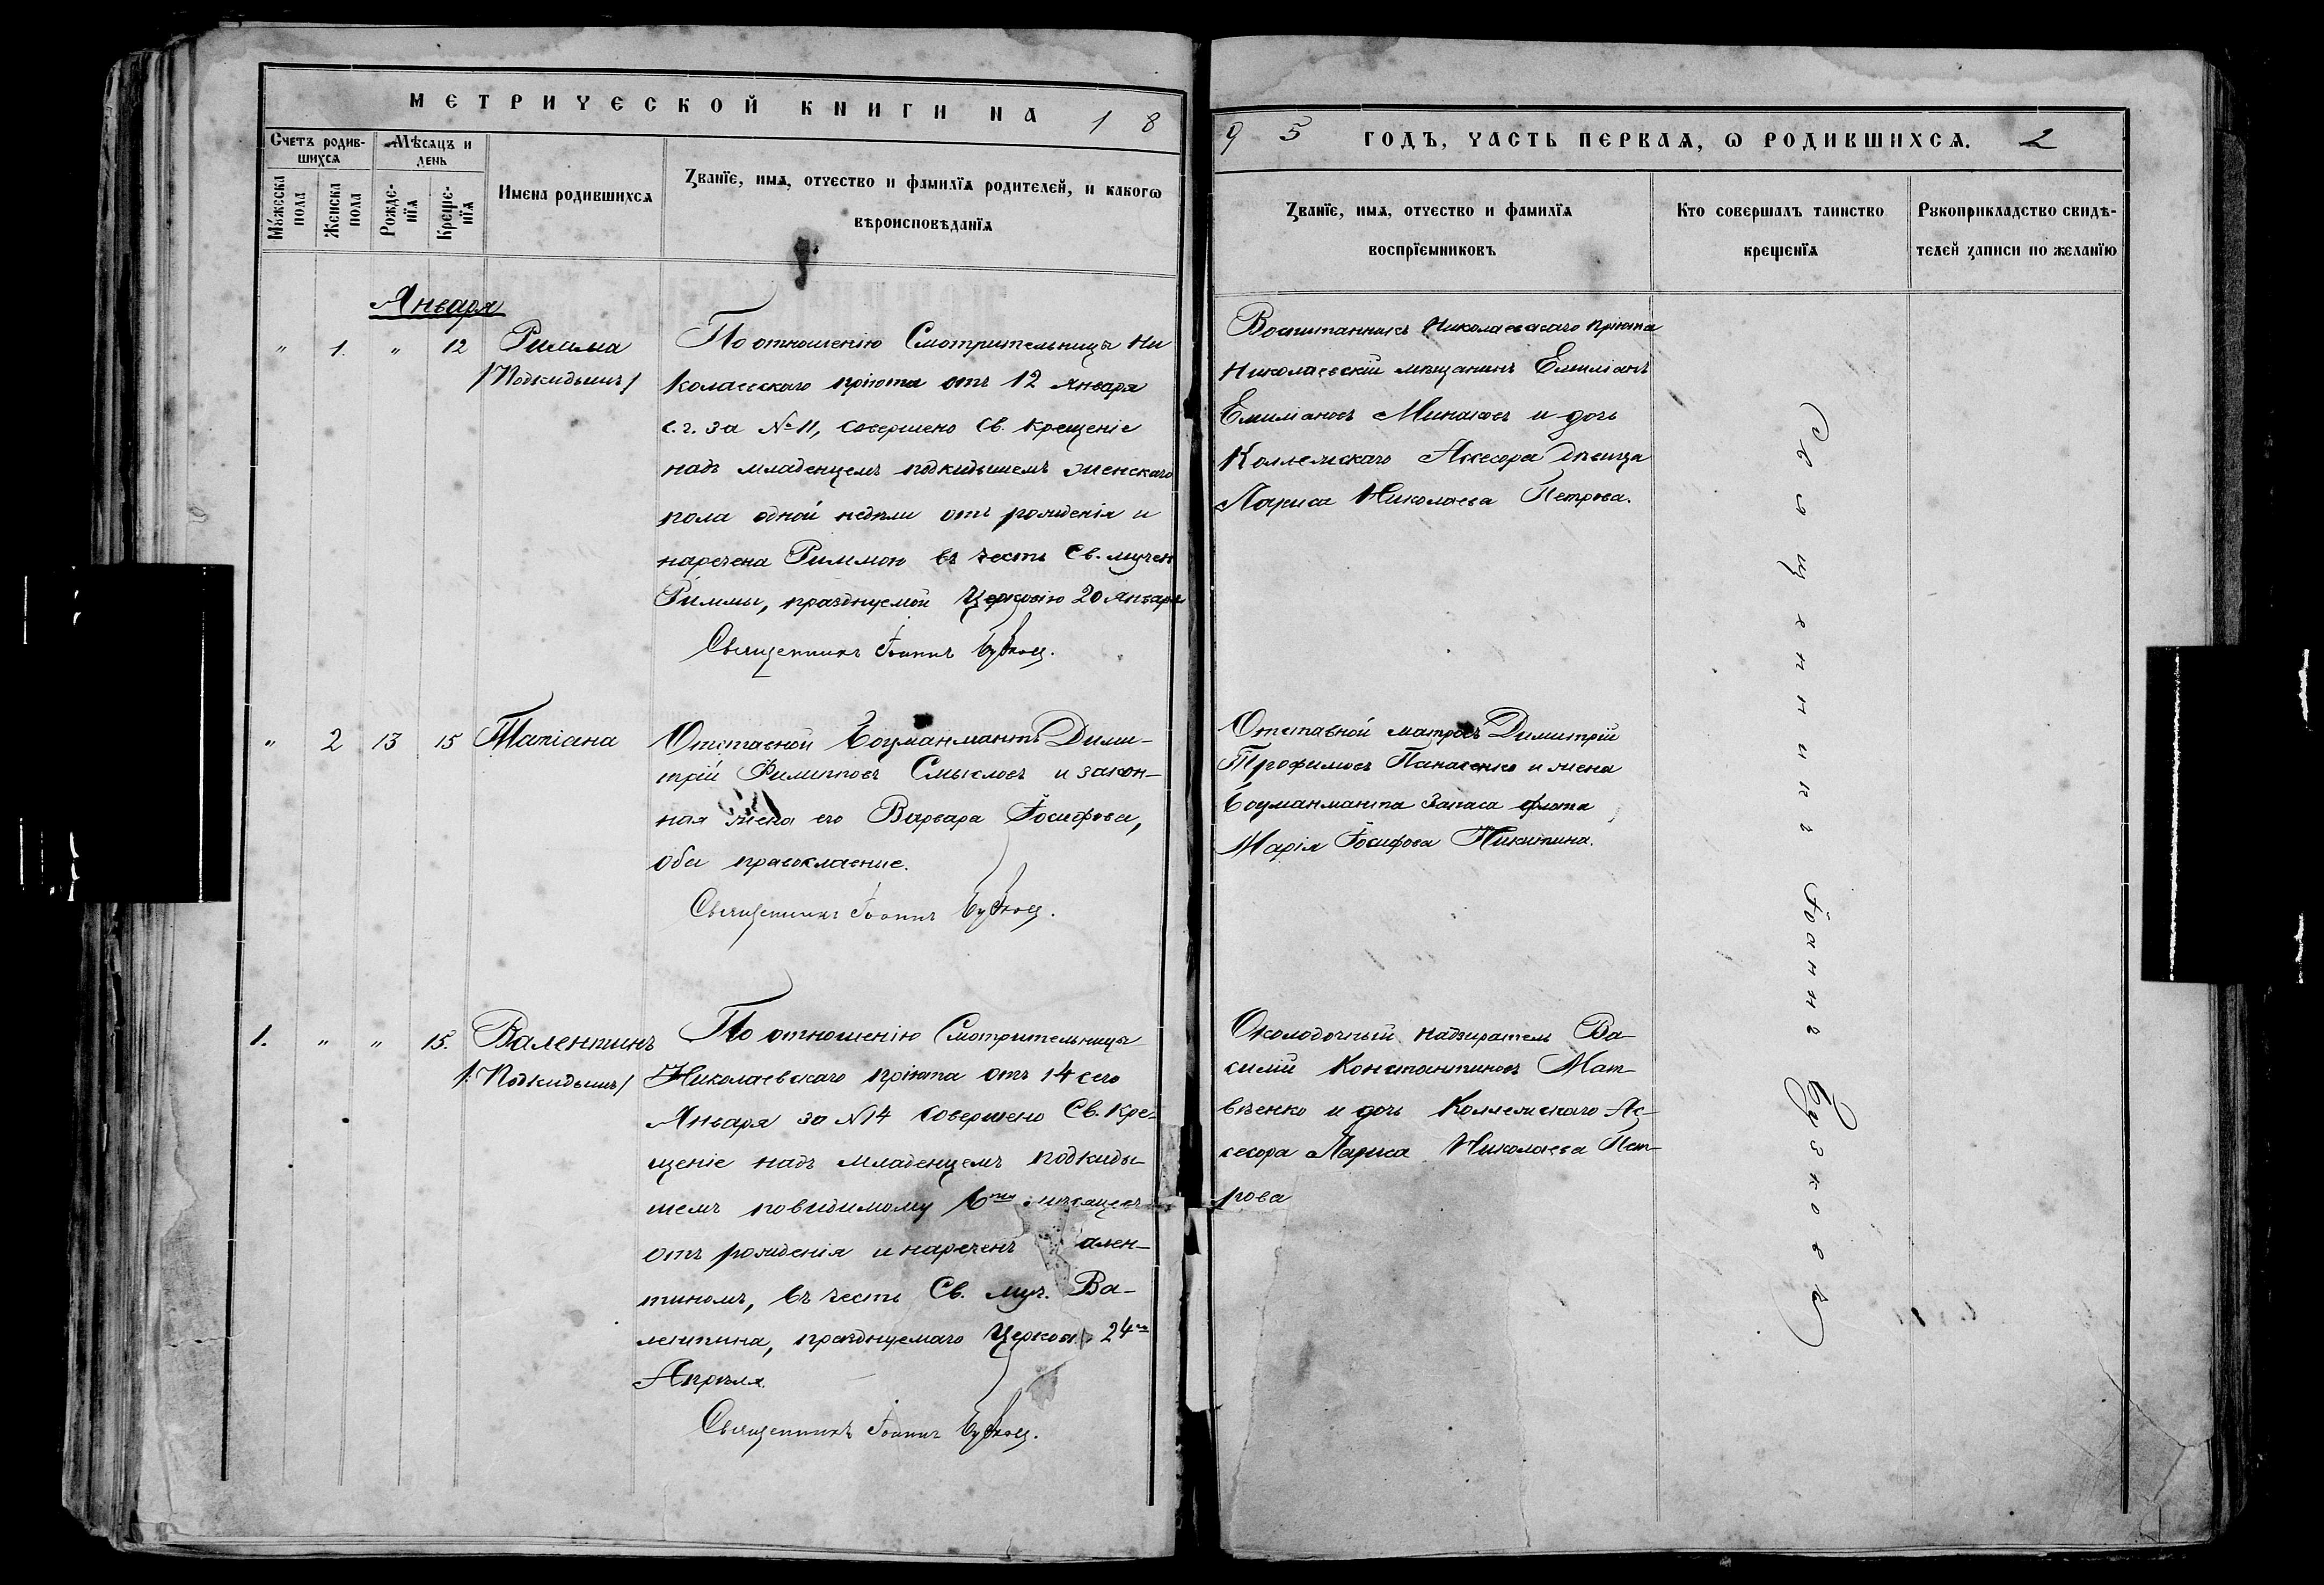 МЕТРИЧЕСКОЙ КНИГИ НА 18
95 ГОДЪ, ЧАСТЬ ПЕРВАѦ, Ѡ РОДИВШИХСѦ. 2
Счетъ родив-
шихсѧ
Мѣсѧцъ и
день
Мꙋжеска пола
Женска пола
Рожде-
нїѧ
Креще-
нїѧ
Имена родившихсѧ
Званїе, имѧ, отчество и фамилїѧ родителей, и какогѡ
вѣроисповѣданїѧ
Званїе, имѧ, отчество и фамилїѧ
воспрїемниковъ
Кто совершалъ таинство
крещенїѧ
Рꙋкоприкладство свидѣ-
телей записи по желанїю
Января
" 1. " 12 Римма
/Подкидышъ/
По отношенію Смотрительницы Ни
колаевскаго пріюта отъ 12 Января
с.г. за № 11, совершено Св. Крещеніе
надъ младенцемъ подкидышемъ женскаго
пола одной недѣли отъ рожденія и
наречена Риммою въ честь Св. мучен
Риммы, празднуемой Церковію 20 Января
Священникъ Іоаннъ
Воспитанникъ Николаевскаго пріюта
Николаевскій мѣщанинъ Емиліанъ
Емиліановъ Минаковъ и дочь
Коллежскаго Ассесора дѣвица
Лариса Николаева Петрова.
" 2 13 15 Татіана
Отставной Боцманматъ Дими-
трій Филипповъ Смысловъ и закон-
ная жена его Варвара Іосифова,
оба православные.
Священникъ Іоаннъ
Отставной матросъ Димитрій
Трофимовъ Панасенко и жена
Боцманмата Запаса флота
Марія Іосифова Никитина.
1. " " 15. Валентинъ
/:Подкидышъ/
По отношенію Смотрительницы
Николаевскаго пріюта отъ 14 сего
Января за №14 совершено Св. Кре-
щеніе надъ младенцемъ подкиды-
шемъ повидимому 6ти мѣсяцевъ
отъ рожденія и нареченъ ален-
тиномъ, въ честь Св. муч. Ва-
лентина, празднуемаго Церков 24го
Апрѣля.
Священникъ Іоаннъ
Околодочный надзиратель Ва-
силій Константиновъ Мат-
вѣенко и дочь Коллежскаго Ас-
сесора Лариса Николаева Пет-
рова
Священникъ Іоаннъ Бузковъ